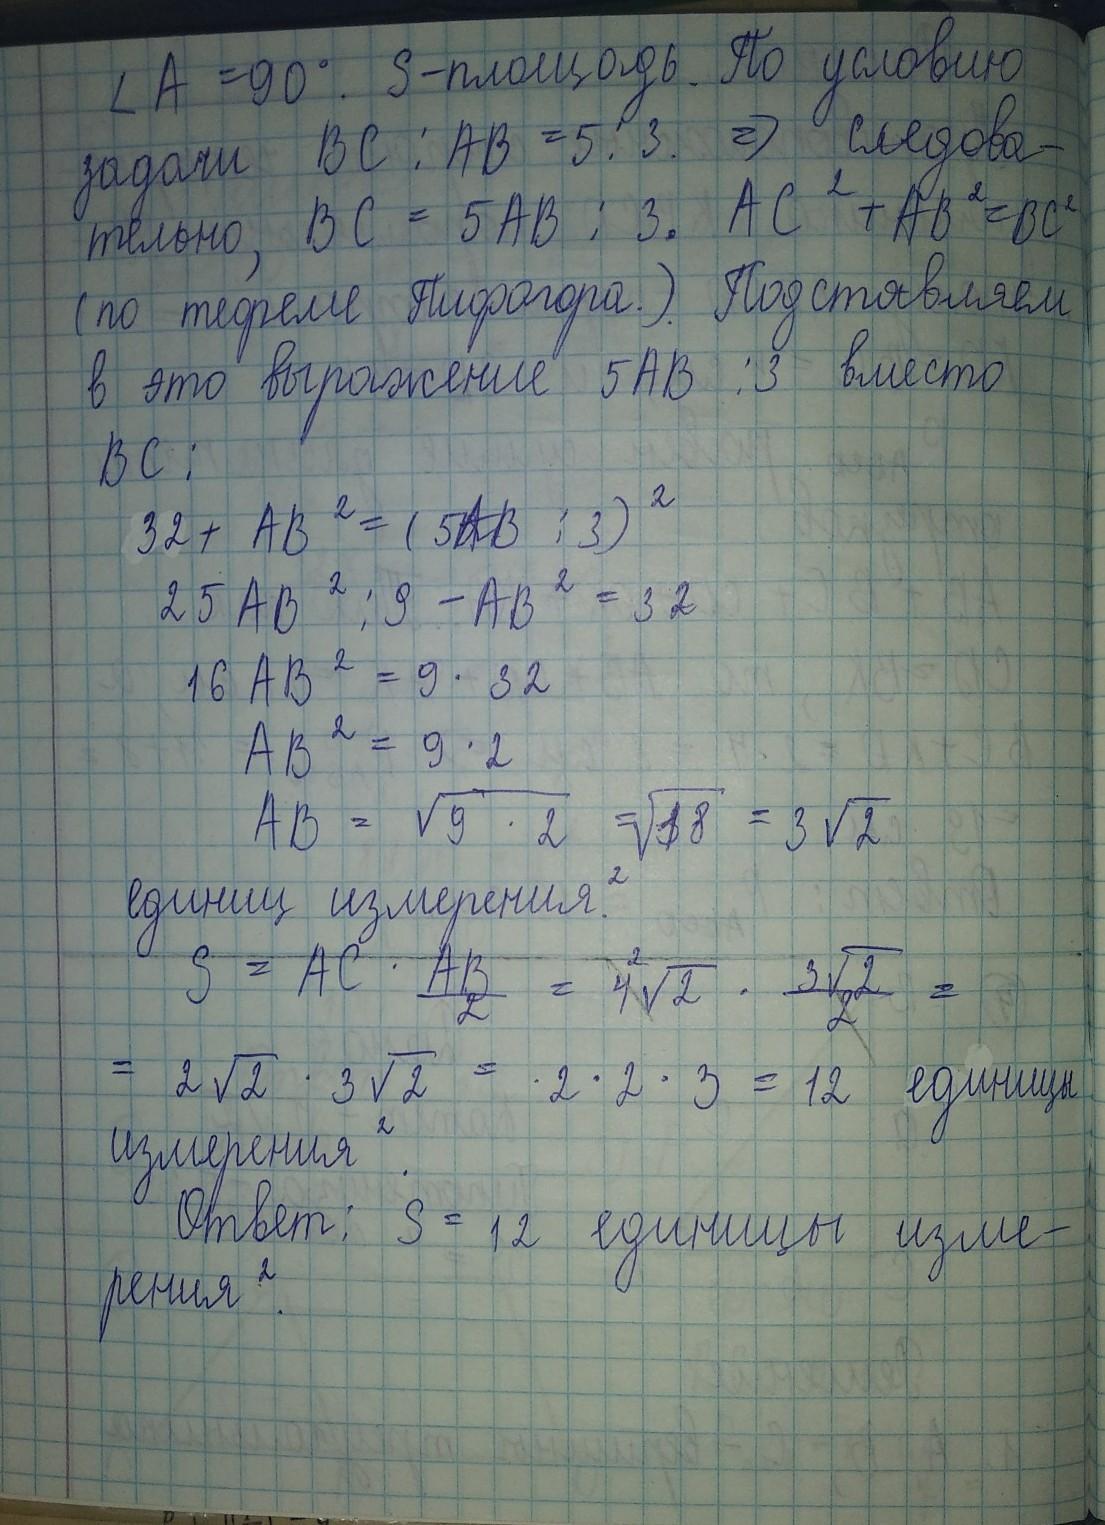 ∠A = 90°. S-площадь. По условию
задачи BC : AB = 5 : 3. => следова-
тельно, BC = 5AB : 3. AC² + AB² = BC²
(по теореме Пифагора.). Подставляем
в это выражение 5AB : 3 вместо
BC :
32 + AB² = (5AB : 3)²
25 AB² : 9 - AB² = 32
16 AB² = 9 · 32
AB² = 9 · 2
AB = √9 · 2 = √18 = 3√2
единиц измерения.²
S = AC · AB/2 = 4²√2 · 3√2/2 =
= 2√2 · 3√2 = · 2 · 2 · 3 = 12 единицы
измерения².
Ответ: S = 12 единицы изме-
рения².